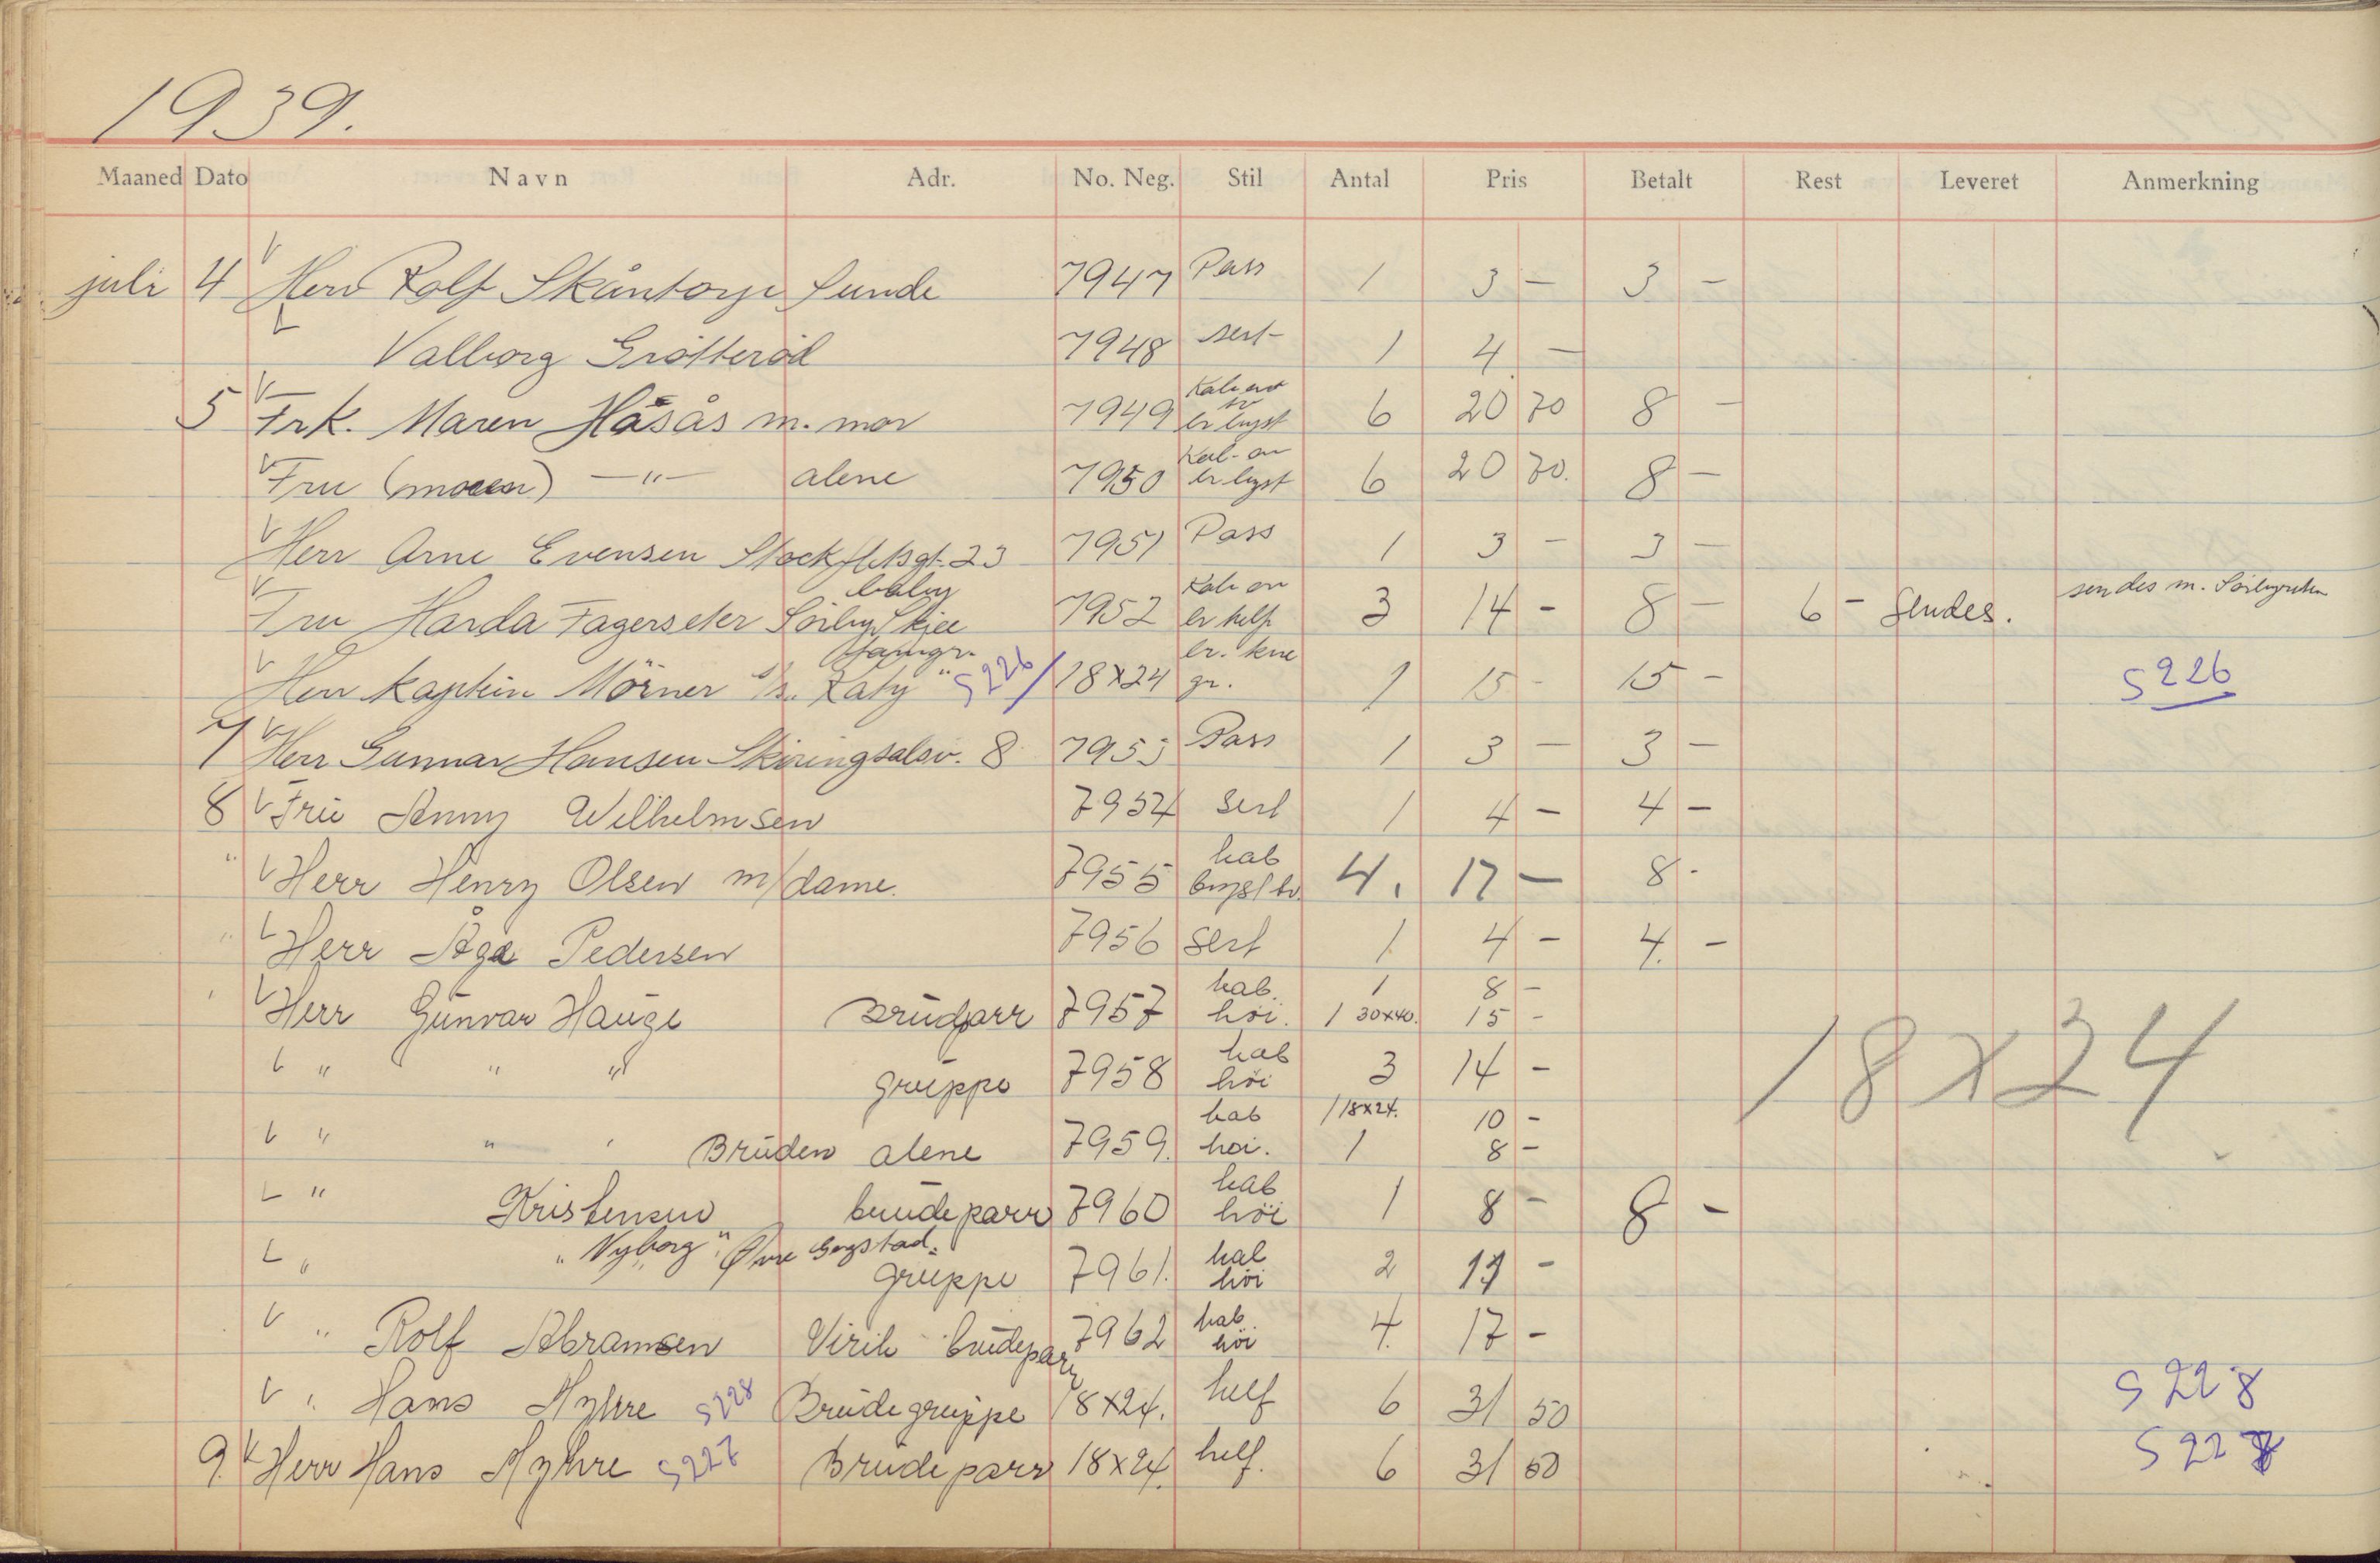 1939.
Maaned Dato Navn Adr. No. Neg. Stil Antal Pris Betalt Rest Leveret Anmerkning
juli 4 Herr Rolf Skåntorp Sunde 7947 Pass 1 3 - 3 -
Valborg Grötteröd 7948 sert- 1 4 -
5 Frk. Maren Håsås m. mor 7949 br bryst 6 20 70 8 -
Fru (moren) -"- alene 7950 br bryst 6 20 70. 8 -
Herr Arne Evensen Stockfletsgt. 23 7951 Pass 1 3 - 3 -
baby
Fru Harda Fagerseter Sörby Skjee 7952 br helf 3 14 - 8 - 6 - Sendes. sendes m. Sörbyruten
famgr.
Herr Kaptein Mörner Katy" S226/ 18x24 br. kne gr. 1 15 - 15 - S226
7 Herr Gunnar Hansen Skiringsalsv. 8 7953 Pass 1 3 - 3 -
8 Fru Anny Wilhelmsen 7954 sert 1 4 - 4 -
" Herr Henry Olsen m/dame. 7955 kab bryst br. 4. 17 - 8 -
" Herr Åge Pedersen 7956 sert 1 4 - 4. -
" Herr Gunvar Hauge Brudparr 7957 kab. höi. 1 8 -
1 30x40. 15 -
" " " gruppe 7958 kab höi 3 14 -
18x24
" " " Bruden alene 7959. kab hoi. 1 18x24. 10 -
1 8 -
" Kristensen brudeparr 7960 kab höi 1 8 - 8 -
" "Nyborg", Øvre Gogstad. gruppe 7961. kab höi 2 -
" Rolf Abramsen Virik brudeparr 7962 kab. höi 4. 17 -
" Hans Myhre S228 Brudegruppe 18x24. helf 6 31 50 S228
9. Herr Hans Myhre S227 Brudeparr 18x24. helf. 6 31 50 S227